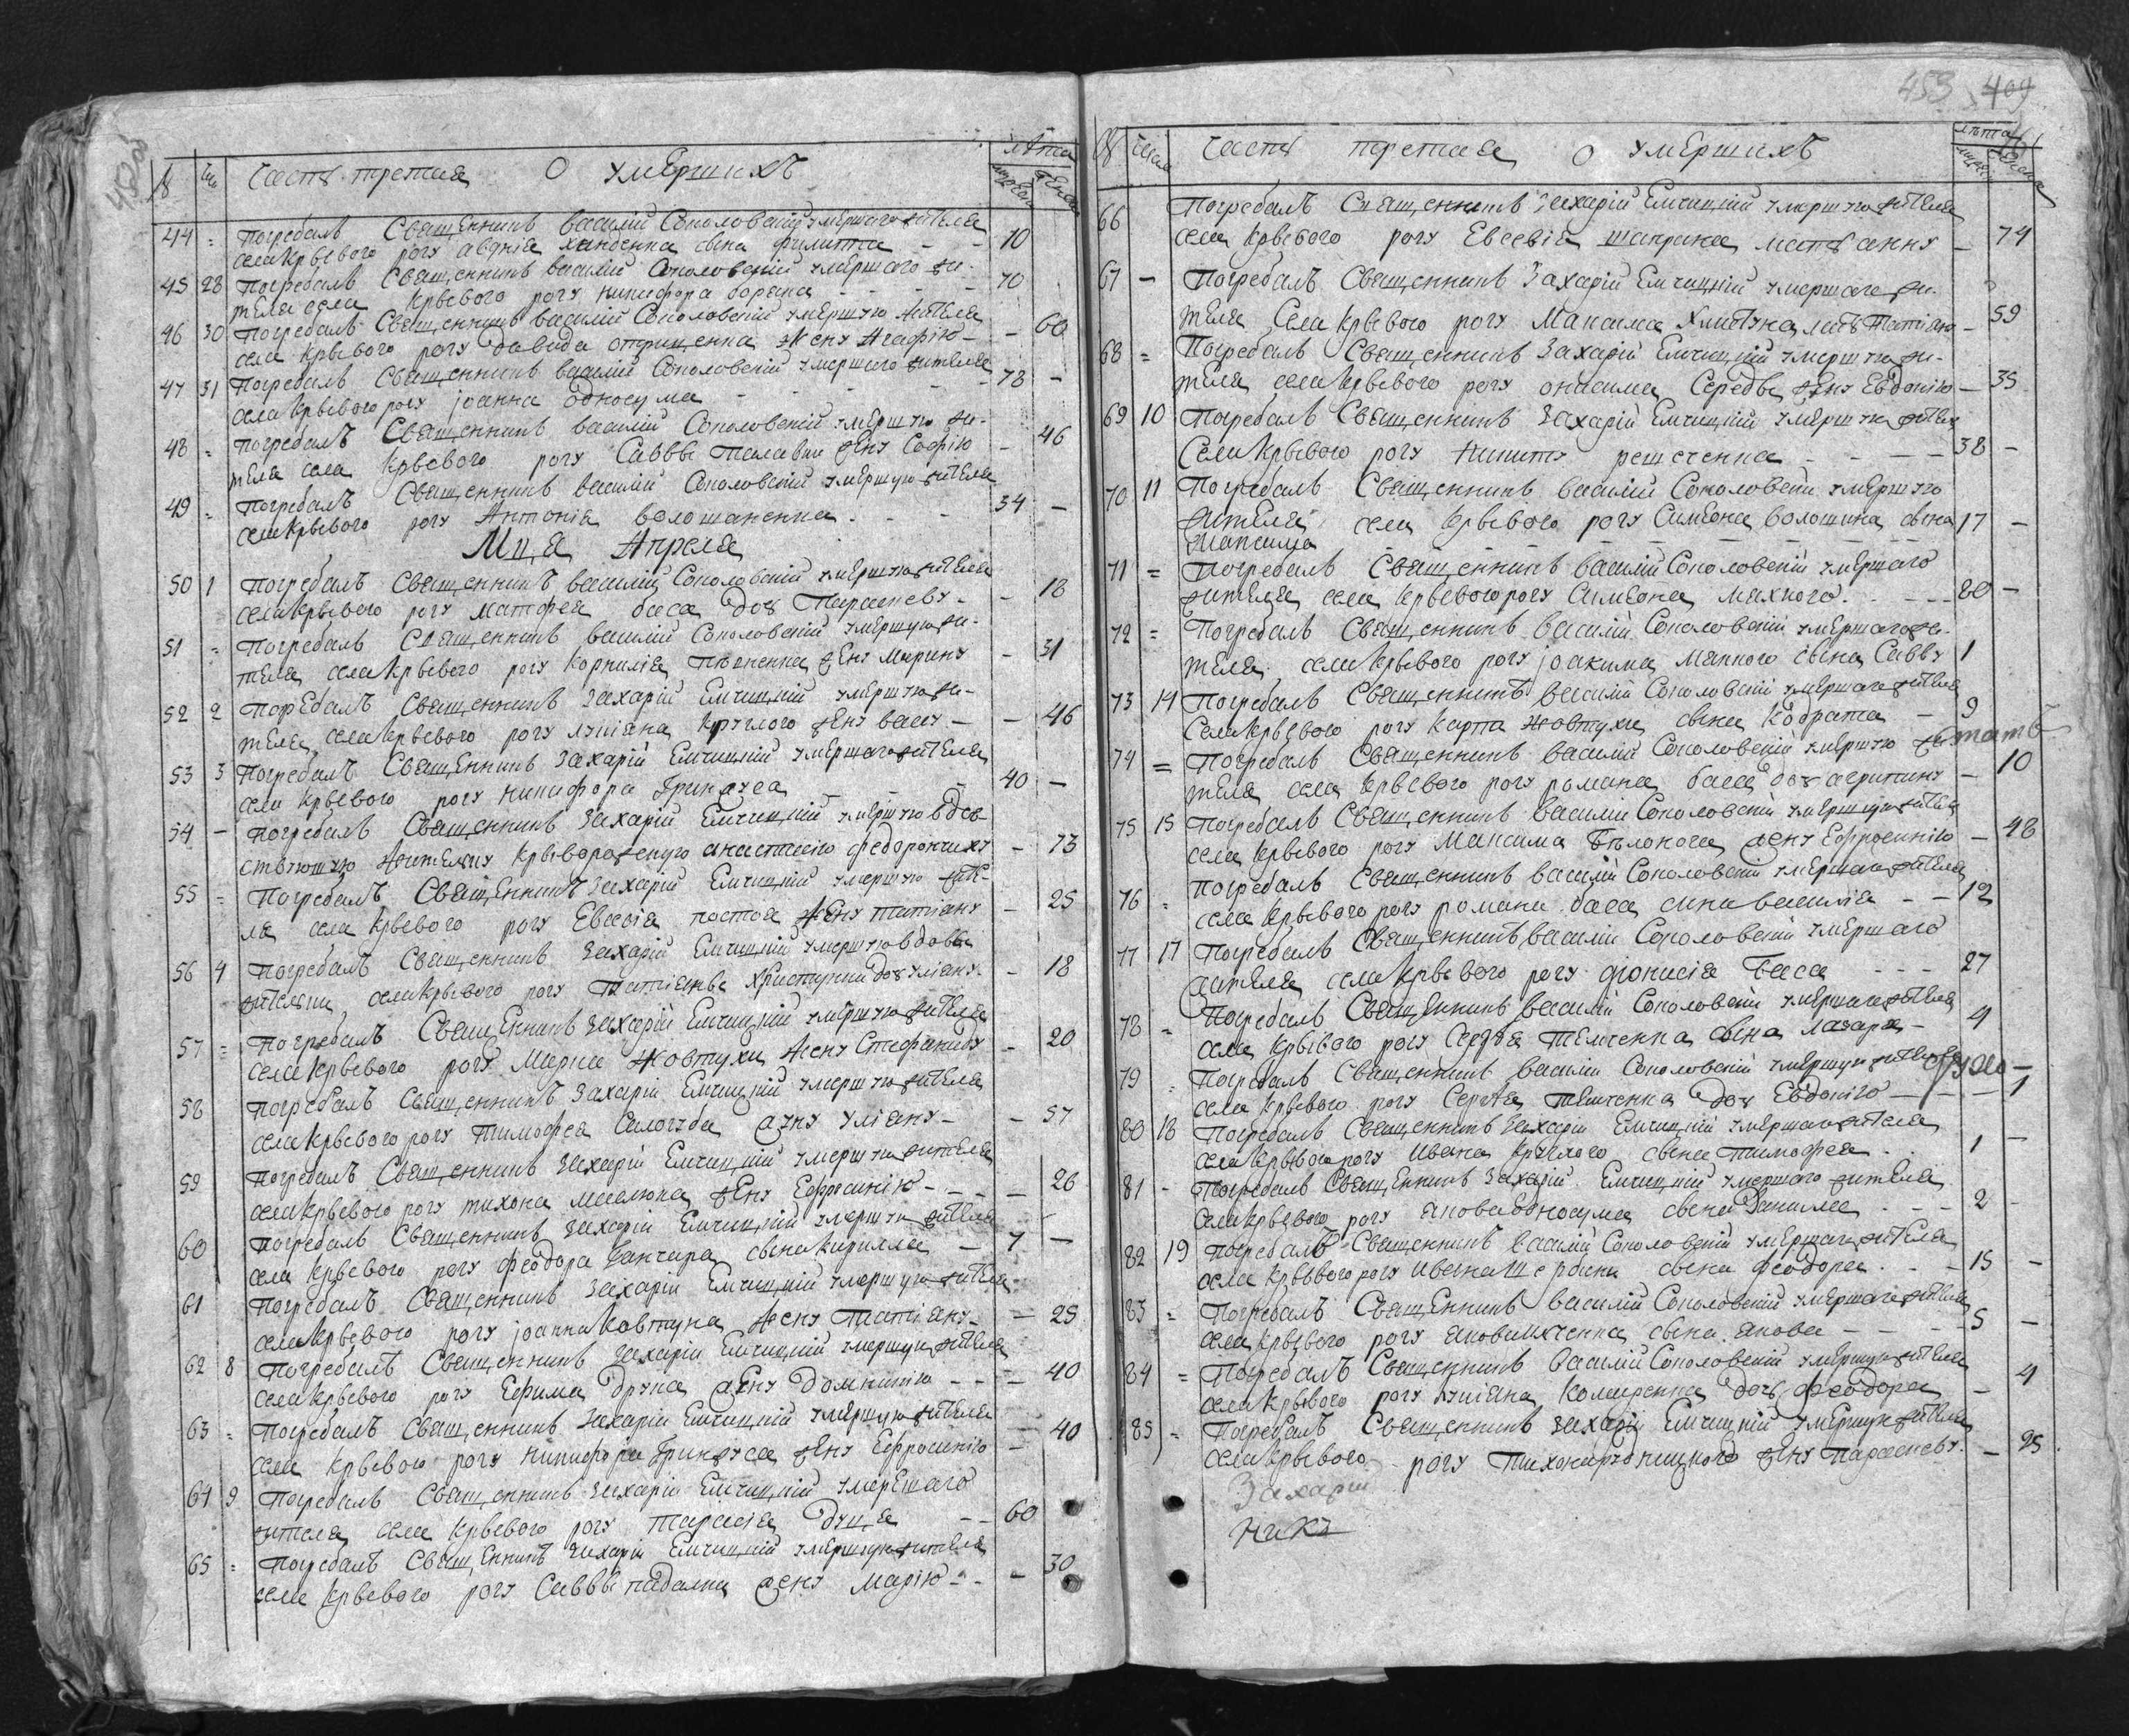 Часть третиа О умершихъ лѣта
44 = Погребалъ Священникъ василій Соколовскій умершаго жителя
села Крывого рогу авдѣia ханденка сына Филиппа - - 10
45 28 Погребалъ Священникъ василій Соколовскій умершаго жи-
теля села Крывого рогу никифора - - - - 70
46 30 Погребалъ Священникъ василій Соколовскій умершую жителя
села Крывого рогу давида жену Агафiю - - 60
47 31 Погребалъ Священникъ василій Соколовскій умершаго жителя
села Крывого рогу іоанна Односума - - - 73 -
48 = Погребалъ Священникъ василій Соколовскій умершую жи-
теля села Крывого рогу Саввы жену Софію - 46
49 = Погребалъ Священникъ василій Соколовскій умершую жителя
села Крывого рогу Антонія волошаненка - - - 34 -
Мця Апреля
50 1 Погребалъ Священникъ василій Соколовскій умершую жителя
села Крывого рогу матфея баса доч Параскеву - - 18
51 = Погребалъ Священникъ василій Соколовскій умершую жи-
теля села Крывого рогу Корнилія жену Марину - 31
52 2 Погребалъ Священникъ Захарій Емчицкій умершую жи-
теля села Крывого рогу лукіана Круглого жену васу - - 46
53 3 Погребалъ Священникъ Захарій Емчицкій умершаго жителя
села Крывого рогу никифора Гринжуса - - - 40 -
54 - Погребалъ Священникъ Захарій Емчицкій умершую вдов-
ствующую жителку Крыворожскую анастасію федорончиху - 73
55 = Погребалъ Священникъ Захарій Емчицкій умершую жите-
ля села Крывого рогу Евсевія постоа жену татіану - 25
56 4 Погребалъ Священникъ Захарій Емчицкій умершую вдовы
жителки села Крывого рогу Татіаны доч уліану - - 18
57 = Погребалъ Священникъ Захарій Емчицкій умершую жителя
села Крывого рогу Марка Жовтухи жену Стефаниду - 20
58 Погребалъ Священникъ Захарій Емчицкій умершую жителя
села Крывого рогу тимофея Салогуба жену уліану - - 57
59 Погребалъ Священникъ Захарій Емчицкій умершую жителя
села Крывого рогу тихона маслюка жену Ефросинію - - - 26
60 Погребалъ Священникъ Захарій Емчицкій умершаго жителя
села Крывого рогу феодора сына Кирилла - 7 -
61 Погребалъ Священникъ Захарій Емчицкій умершую жителя
села Крывого рогу іоанна Ковтуна жену татіану - - 25
62 8 Погребалъ Священникъ Захарій Емчицкій умершую жителя
села Крывого рогу Ефима Друка жену Домникію - - - 40
63 = Погребалъ Священникъ Захарій Емчицкій умершую жителя
села Крывого рогу никифора Гринжуса жену Ефросинію - 40
64 9 Погребалъ Священникъ Захарій Емчицкій умершаго
жителя села Крывого рогу тарасія - - 60
65 = Погребалъ Священникъ Захарій Емчицкій умершую жителя
села Крывого рогу Саввы падалки жену марію - - - 30
453 409
числа Часть третаа О умершихъ лѣта
66 Погребалъ Священникъ Захарій Емчицкій умершую жителя
села Крывого рогу Евсевіа мать анну - 74
67 - Погребалъ Священникъ Захарій Емчицкій умершаго жи-
теля Села Крывого рогу Максима мать татіану - 59
68 = Погребалъ Священникъ Захарій Емчицкій умершую жи-
теля села Крывого рогу онисима Середы жену Евдокію - 35
69 10 Погребалъ Священникъ Захарій Емчицкій умершую жителя
Села Крывого рогу Никиту решетенка - - - 38 -
70 11 Погребалъ Священникъ василій Соколовскій умершую
жителя села Крывого рогу Симеона волошина сына 17 -
максима - - - - - -
71 = Погребалъ Священникъ василій Соколовскій умершаго
жителя села Крывого рогу Симеона махного - - - 80 -
72 = Погребалъ Священникъ василій Соколовскій умершаго жи-
теля села Крывого рогу іоакима мапного сына Савву 1
73 14 Погребалъ Священникъ василій Соколовскій умершаго жителя
Села Крывого рогу Карпа жовтухи сына Кодрата - 9
74 = Погребалъ Священникъ василій Соколовскій умершую жи-
теля села Крывого рогу романа баса доч агрипину - 10
75 15 Погребалъ Священникъ василій Соколовскій умершую жителя
села Крывого рогу максима Бѣлокона жену Ефросинію - 48
76 = Погребалъ Священникъ василій Соколовскій умершаго жителя
села Крывого рогу романа баса сина василіа - - 12
77 17 Погребалъ Священникъ василій Соколовскій умершаго
жителя села Крывого рогу діонисія Баса - - - 27
78 = Погребалъ Священникъ василій Соколовскій умершаго жителя
села Крывого рогу Сергѣя Темченка сына лазаря - 4
79 = Погребалъ Священникъ василій Соколовскій умершую жителя
села Крывого рогу Сергѣя Темченка доч Евдокію - - - 1
80 18 Погребалъ Священникъ Захарій Емчицкій умершаго жителя
села Крывого рогу Ивана Круглого сына тимофея - 1 -
81 - Погребалъ Священникъ Захарій Емчицкій умершаго жителя
Села Крывого рогу якова Односума сына Данила - - - 2 -
82 19 Погребалъ Священникъ василій Соколовскій умершаго жителя
села Крывого рогу Ивана Щербини сына феодора - - 15 -
83 = Погребалъ Священникъ василій Соколовскій умершаго жителя
села Крывого рогу сына якова - - - 5 -
84 = Погребалъ Священникъ василій Соколовскій умершую жителя
села Крывого рогу лукіана доч феодора - 4
85 = Погребалъ Священникъ Захарій Емчицкій умершую жителя
села Крывого рогу тихона жену параскеву - - 25
Захарій